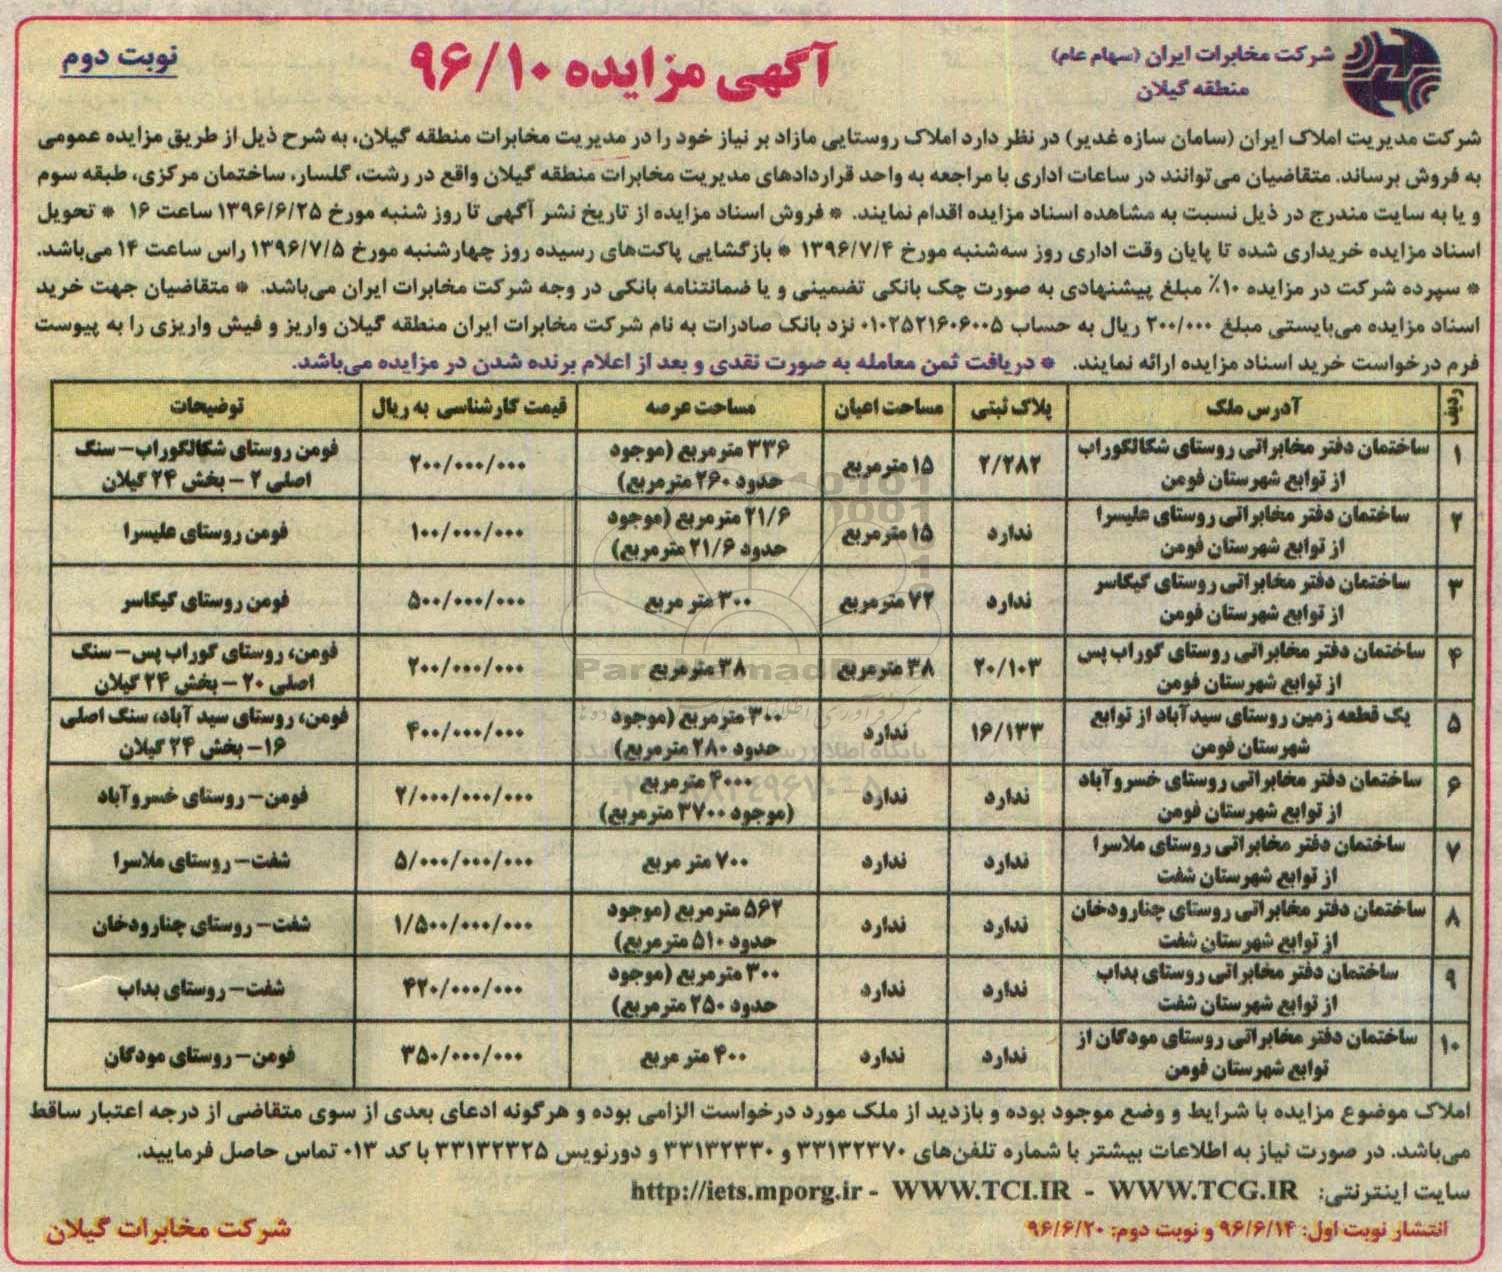 شرکت مخابرات ایران (سهام عام)
منطقه گیلان
آگهی مزایده ۹۶/۱۰
نوبت دوم
شرکت مدیریت املاک ایران (سامان سازه غدیر) در نظر دارد املاک روستایی مازاد بر نیاز خود را در مدیریت مخابرات منطقه گیلان، به شرح ذیل از طریق مزایده عمومی
به فروش برساند. متقاضیان می‌توانند در ساعات اداری با مراجعه به واحد قراردادهای مدیریت مخابرات منطقه گیلان واقع در رشت، گلسار، ساختمان مرکزی، طبقه سوم
و یا به سایت مندرج در ذیل نسبت به مشاهده اسناد مزایده اقدام نمایند. * فروش اسناد مزایده از تاریخ نشر آگهی تا روز شنبه مورخ ۱۳۹۶/۶/۲۵ ساعت ۱۶ * تحویل
اسناد مزایده خریداری شده تا پایان وقت اداری روز سه‌شنبه مورخ ۱۳۹۶/۷/۴ * بازگشایی پاکت‌های رسیده روز چهارشنبه مورخ ۱۳۹۶/۷/۵ راس ساعت ۱۴ می‌باشد.
* سپرده شرکت در مزایده ۱۰٪ مبلغ پیشنهادی به صورت چک بانکی تضمینی و یا ضمانتنامه بانکی در وجه شرکت مخابرات ایران می‌باشد. * متقاضیان جهت خرید
اسناد مزایده می‌بایستی مبلغ ۲۰۰/۰۰۰ ریال به حساب ۰۱۰۲۵۲۱۶۰۶۰۰۵ نزد بانک صادرات به نام شرکت مخابرات ایران منطقه گیلان واریز و فیش واریزی را به پیوست
فرم درخواست خرید اسناد مزایده ارائه نمایند. * دریافت ثمن معامله به صورت نقدی و بعد از اعلام برنده شدن در مزایده می‌باشد.
ردیف آدرس ملک پلاک ثبتی مساحت اعیان مساحت عرصه قیمت کارشناسی به ریال توضیحات
۱ ساختمان دفتر مخابراتی روستای شکالگوراب از توابع شهرستان فومن ۲/۲۸۲ ۱۵ مترمربع ۳۳۶ مترمربع (موجود حدود ۲۶۰ مترمربع) ۲۰۰/۰۰۰/۰۰۰ فومن روستای شکالگوراب- سنگ اصلی ۲ - بخش ۲۴ گیلان
۲ ساختمان دفتر مخابراتی روستای علیسرا از توابع شهرستان فومن ندارد ۱۵ مترمربع ۲۱/۶ مترمربع (موجود حدود ۲۱/۶ مترمربع) ۱۰۰/۰۰۰/۰۰۰ فومن روستای علیسرا
۳ ساختمان دفتر مخابراتی روستای گیگاسر از توابع شهرستان فومن ندارد ۷۲ مترمربع ۳۰۰ متر مربع ۵۰۰/۰۰۰/۰۰۰ فومن روستای گیگاسر
۴ ساختمان دفتر مخابراتی روستای گوراب پس از توابع شهرستان فومن ۲۰/۱۰۳ ۳۸ مترمربع ۳۸ مترمربع ۲۰۰/۰۰۰/۰۰۰ فومن، روستای گوراب پس- سنگ اصلی ۲۰ - بخش ۲۴ گیلان
۵ یک قطعه زمین روستای سیدآباد از توابع شهرستان فومن ۱۶/۱۳۳ ندارد ۳۰۰ مترمربع (موجود حدود ۲۸۰ مترمربع) ۴۰۰/۰۰۰/۰۰۰ فومن، روستای سید آباد، سنگ اصلی ۱۶- بخش ۲۴ گیلان
۶ ساختمان دفتر مخابراتی روستای خسروآباد از توابع شهرستان فومن ندارد ندارد ۴۰۰۰ مترمربع (موجود ۳۷۰۰ مترمربع) ۲/۰۰۰/۰۰۰/۰۰۰ فومن- روستای خسروآباد
۷ ساختمان دفتر مخابراتی روستای ملاسرا از توابع شهرستان شفت ندارد ندارد ۷۰۰ متر مربع ۵/۰۰۰/۰۰۰/۰۰۰ شفت- روستای ملاسرا
۸ ساختمان دفتر مخابراتی روستای چنارودخان از توابع شهرستان شفت ندارد ندارد ۵۶۲ مترمربع (موجود حدود ۵۱۰ مترمربع) ۱/۵۰۰/۰۰۰/۰۰۰ شفت- روستای چنارودخان
۹ ساختمان دفتر مخابراتی روستای بداب از توابع شهرستان شفت ندارد ندارد ۳۰۰ مترمربع (موجود حدود ۲۵۰ مترمربع) ۴۲۰/۰۰۰/۰۰۰ شفت- روستای بداب
۱۰ ساختمان دفتر مخابراتی روستای مودگان از توابع شهرستان فومن ندارد ندارد ۴۰۰ متر مربع ۳۵۰/۰۰۰/۰۰۰ فومن- روستای مودگان
املاک موضوع مزایده با شرایط و وضع موجود بوده و بازدید از ملک مورد درخواست الزامی بوده و هرگونه ادعای بعدی از سوی متقاضی از درجه اعتبار ساقط
می‌باشد. در صورت نیاز به اطلاعات بیشتر با شماره تلفن‌های ۳۳۱۳۲۳۷۰ و ۳۳۱۳۲۳۳۰ و دورنویس ۳۳۱۳۲۳۲۵ با کد ۰۱۳ تماس حاصل فرمایید.
سایت اینترنتی: http://iets.mporg.ir - WWW.TCI.IR - WWW.TCG.IR
انتشار نوبت اول: ۹۶/۶/۱۴ و نوبت دوم: ۹۶/۶/۲۰
شرکت مخابرات گیلان